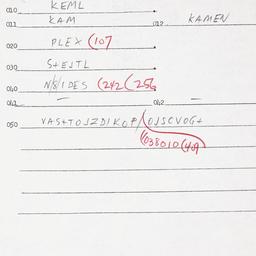 010 KEML
011 KAM 012 KAMEN
020 PLEX (107
030 S+EJTL
040 N/8/IDES (242 (256
041 — 042 —
050 VAS+TOJZDIKOP/OJSCVOG+
(038010 (409